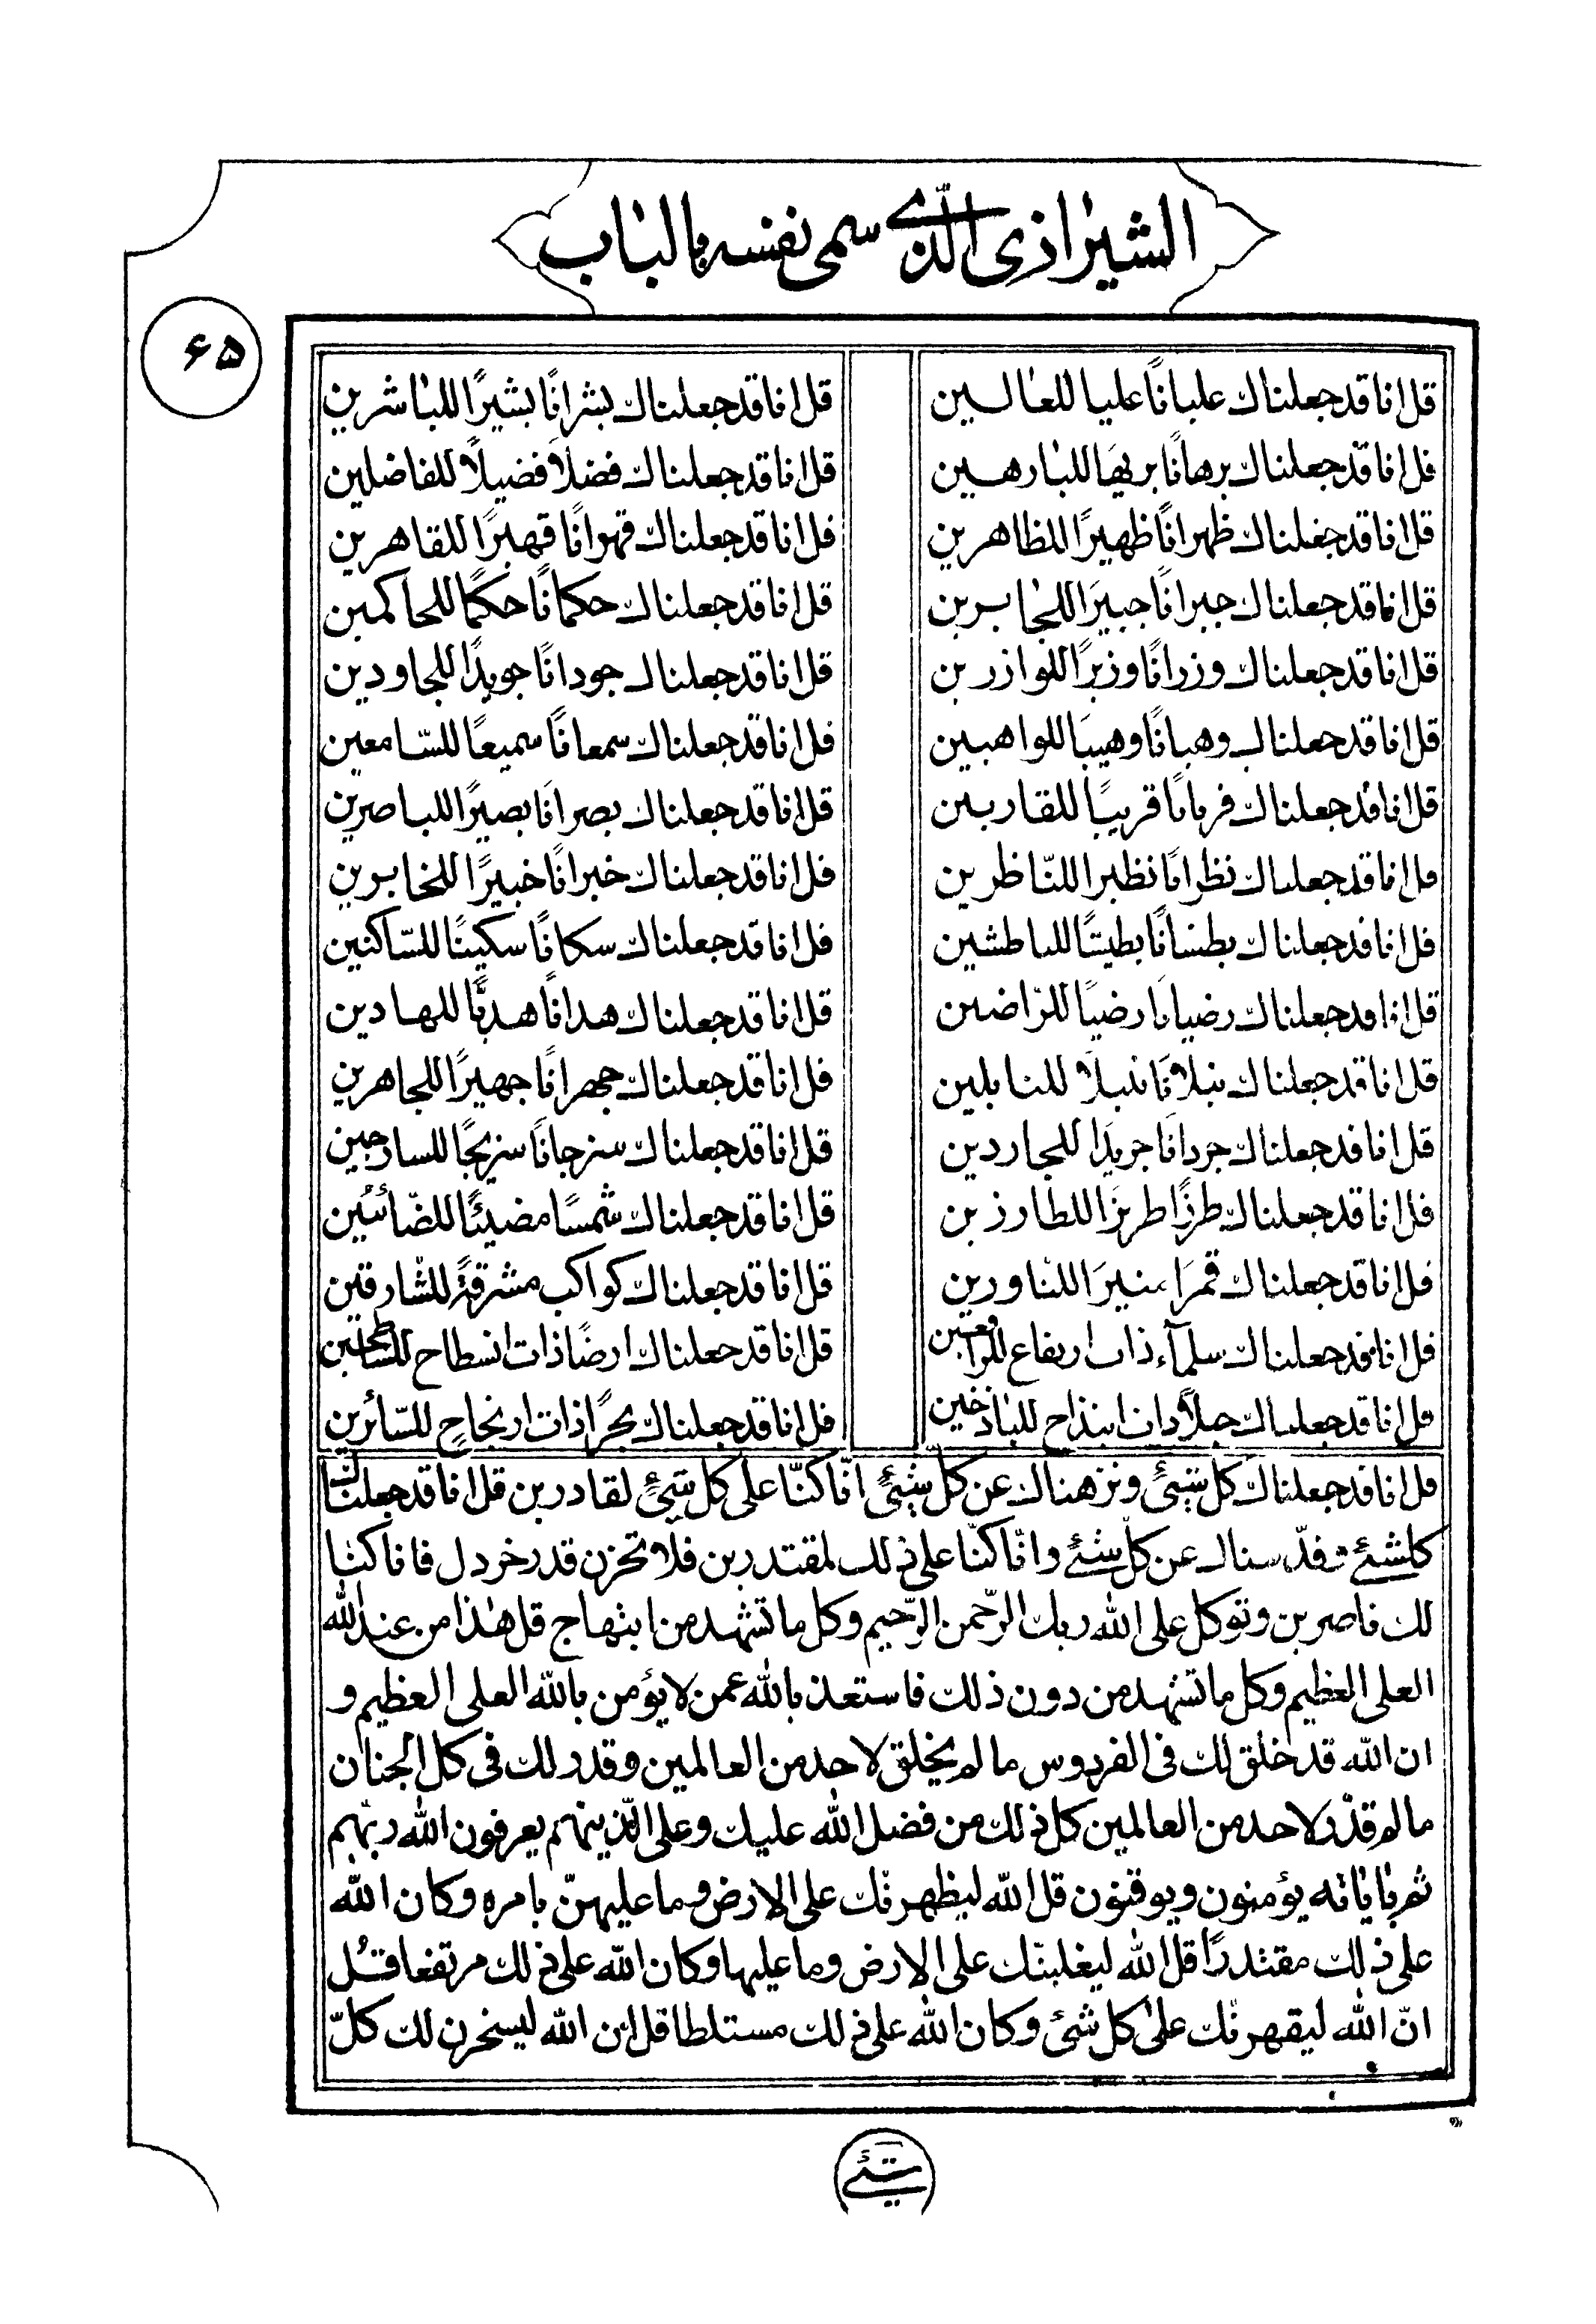 الشيرازي الذي سمى نفسه بالباب
٦٥
قل انا قد جعلناك عليانًا عليا للعالين
قل انا قد جعلناك برهانًا بريهًا للبارهين
قل انا قد جعلناك ظهرانًا ظهيرًا للظاهرين
قل انا قد جعلناك جبرانًا جبيرًا للجابرين
قل انا قد جعلناك وزرانًا وزيرًا للوازرين
قل انا قد جعلناك وهبانًا وهيبًا للواهبين
قل انا قد جعلناك قربانًا قريبًا للقاربين
قل انا قد جعلناك نظرانًا نظيرا للنّاظرين
قل انا قد جعلناك بطشانًا بطيشًا للباطشين
قل انا قد جعلناك رضيانًا رضيًا للرّاضين
قل انا قد جعلناك نبلانًا نبيلًا للنابلين
قل انا قد جعلناك جردانًا جريدًا للجاردين
قل انا قد جعلناك طرزًا طريزًا للطارزين
قل انا قد جعلناك قمرًا منيرًا للناورين
قل انا قد جعلناك سماء ذات ارتفاع للرافعين
قل انا قد جعلناك جبلًا ذات ابتذاخ للباذخين
قل انا قد جعلناك بشرانًا بشيرًا للباشرين
قل انا قد جعلناك فضلًا فضيلًا للفاضلين
قل انا قد جعلناك قهرانًا قهيرًا للقاهرين
قل انا قد جعلناك حكمانًا حكيمًا للحاكمين
قل انا قد جعلناك جودانًا جويدًا للجاودين
قل انا قد جعلناك سمعانًا سميعًا للسّامعين
قل انا قد جعلناك بصرانًا بصيرًا للباصرين
قل انا قد جعلناك خبرانًا خبيرًا للخابرين
قل انا قد جعلناك سكانًا سكينًا للسّاكنين
قل انا قد جعلناك هدانًا هديًّا للهادين
قل انا قد جعلناك جهرانًا جهيرًا للجاهرين
قل انا قد جعلناك سرجانًا سريجًا للسارجين
قل انا قد جعلناك شمسًا مضيئًا للضّائئين
قل انا قد جعلناك كواكب مشرقةً للشّارقين
قل انا قد جعلناك ارضًا ذات انسطاح للسّاطحين
قل انا قد جعلناك بحرًا ذات ارتجاحٍ للسّائرين
قل انا قد جعلناك كل شئ ونزهناك عن كل شئ انّا كنّا على كل شئ لقادرين قل انا قد جعلناك
كلشئ قدّسناك عن كل شئ وانّا كنّا على ذلك لمقتدرين فلا تحزن قدر خردل فانا كنا
لك ناصرين وتوكل على الله ربك الرّحمن الرّحيم وكل ما تشهد من ابتهاج قل هذا من عند الله
العلى العظيم وكل ما تشهد من دون ذلك فاستعذ بالله عمن لا يؤمن بالله العلى العظيم و
ان الله قد خلق لك فى الفردوس ما لم يخلق لاحد من العالمين وقدر لك فى كل الجنان
ما لم قدّر لاحد من العالمين كل ذلك من فضل الله عليك وعلى الّذينهم يعرفون الله ربّهم
ثم باياته يؤمنون ويوقنون قل الله ليظهرنّك على الارض وما عليهنّ بامره وكان الله
على ذلك مقتدرًا قل الله ليغلبنّك على الارض وما عليها وكان الله على ذلك مرتفعا قل
انّ الله ليقهرنّك على كل شئ وكان الله على ذلك مستلطا قل ان الله ليسخرن لك كلّ
شئ